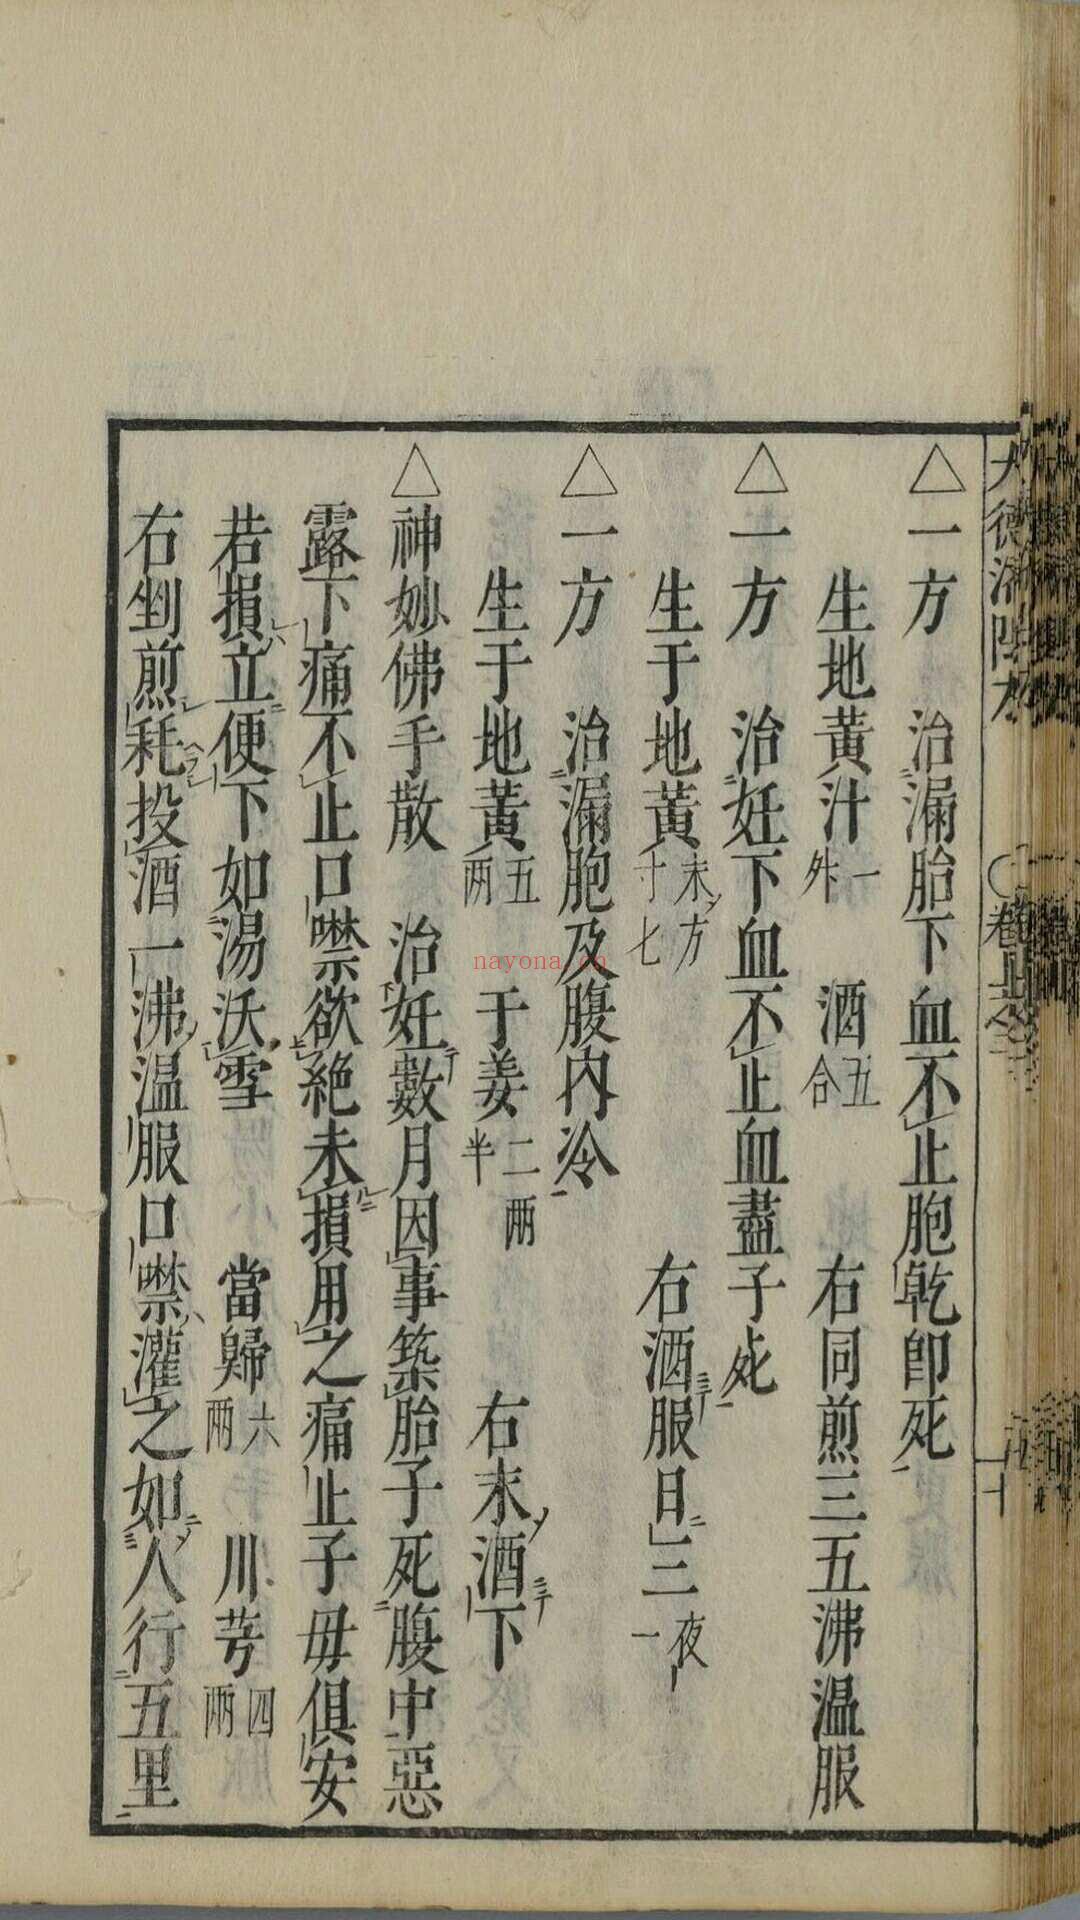 △一方 治漏胎下血不止胞乾即死
生地黄汁一升 酒五合 右同煎三五沸温服
△一方 治妊下血不止血盡子死
生于地黄末方寸七 右酒服日三夜一
△一方 治漏胞及腹内冷
生于地黄五两 于姜二两半 右末酒下
△神妙佛手散 治妊數月因事築胎子死腹中惡
露下痛不止口噤欲絶未損用之痛止子毋俱安
若損立便下如湯沃雪 當歸六两 川芎四两
右剉煎耗投酒一沸温服口噤灌之如人行五里
nayona.cn